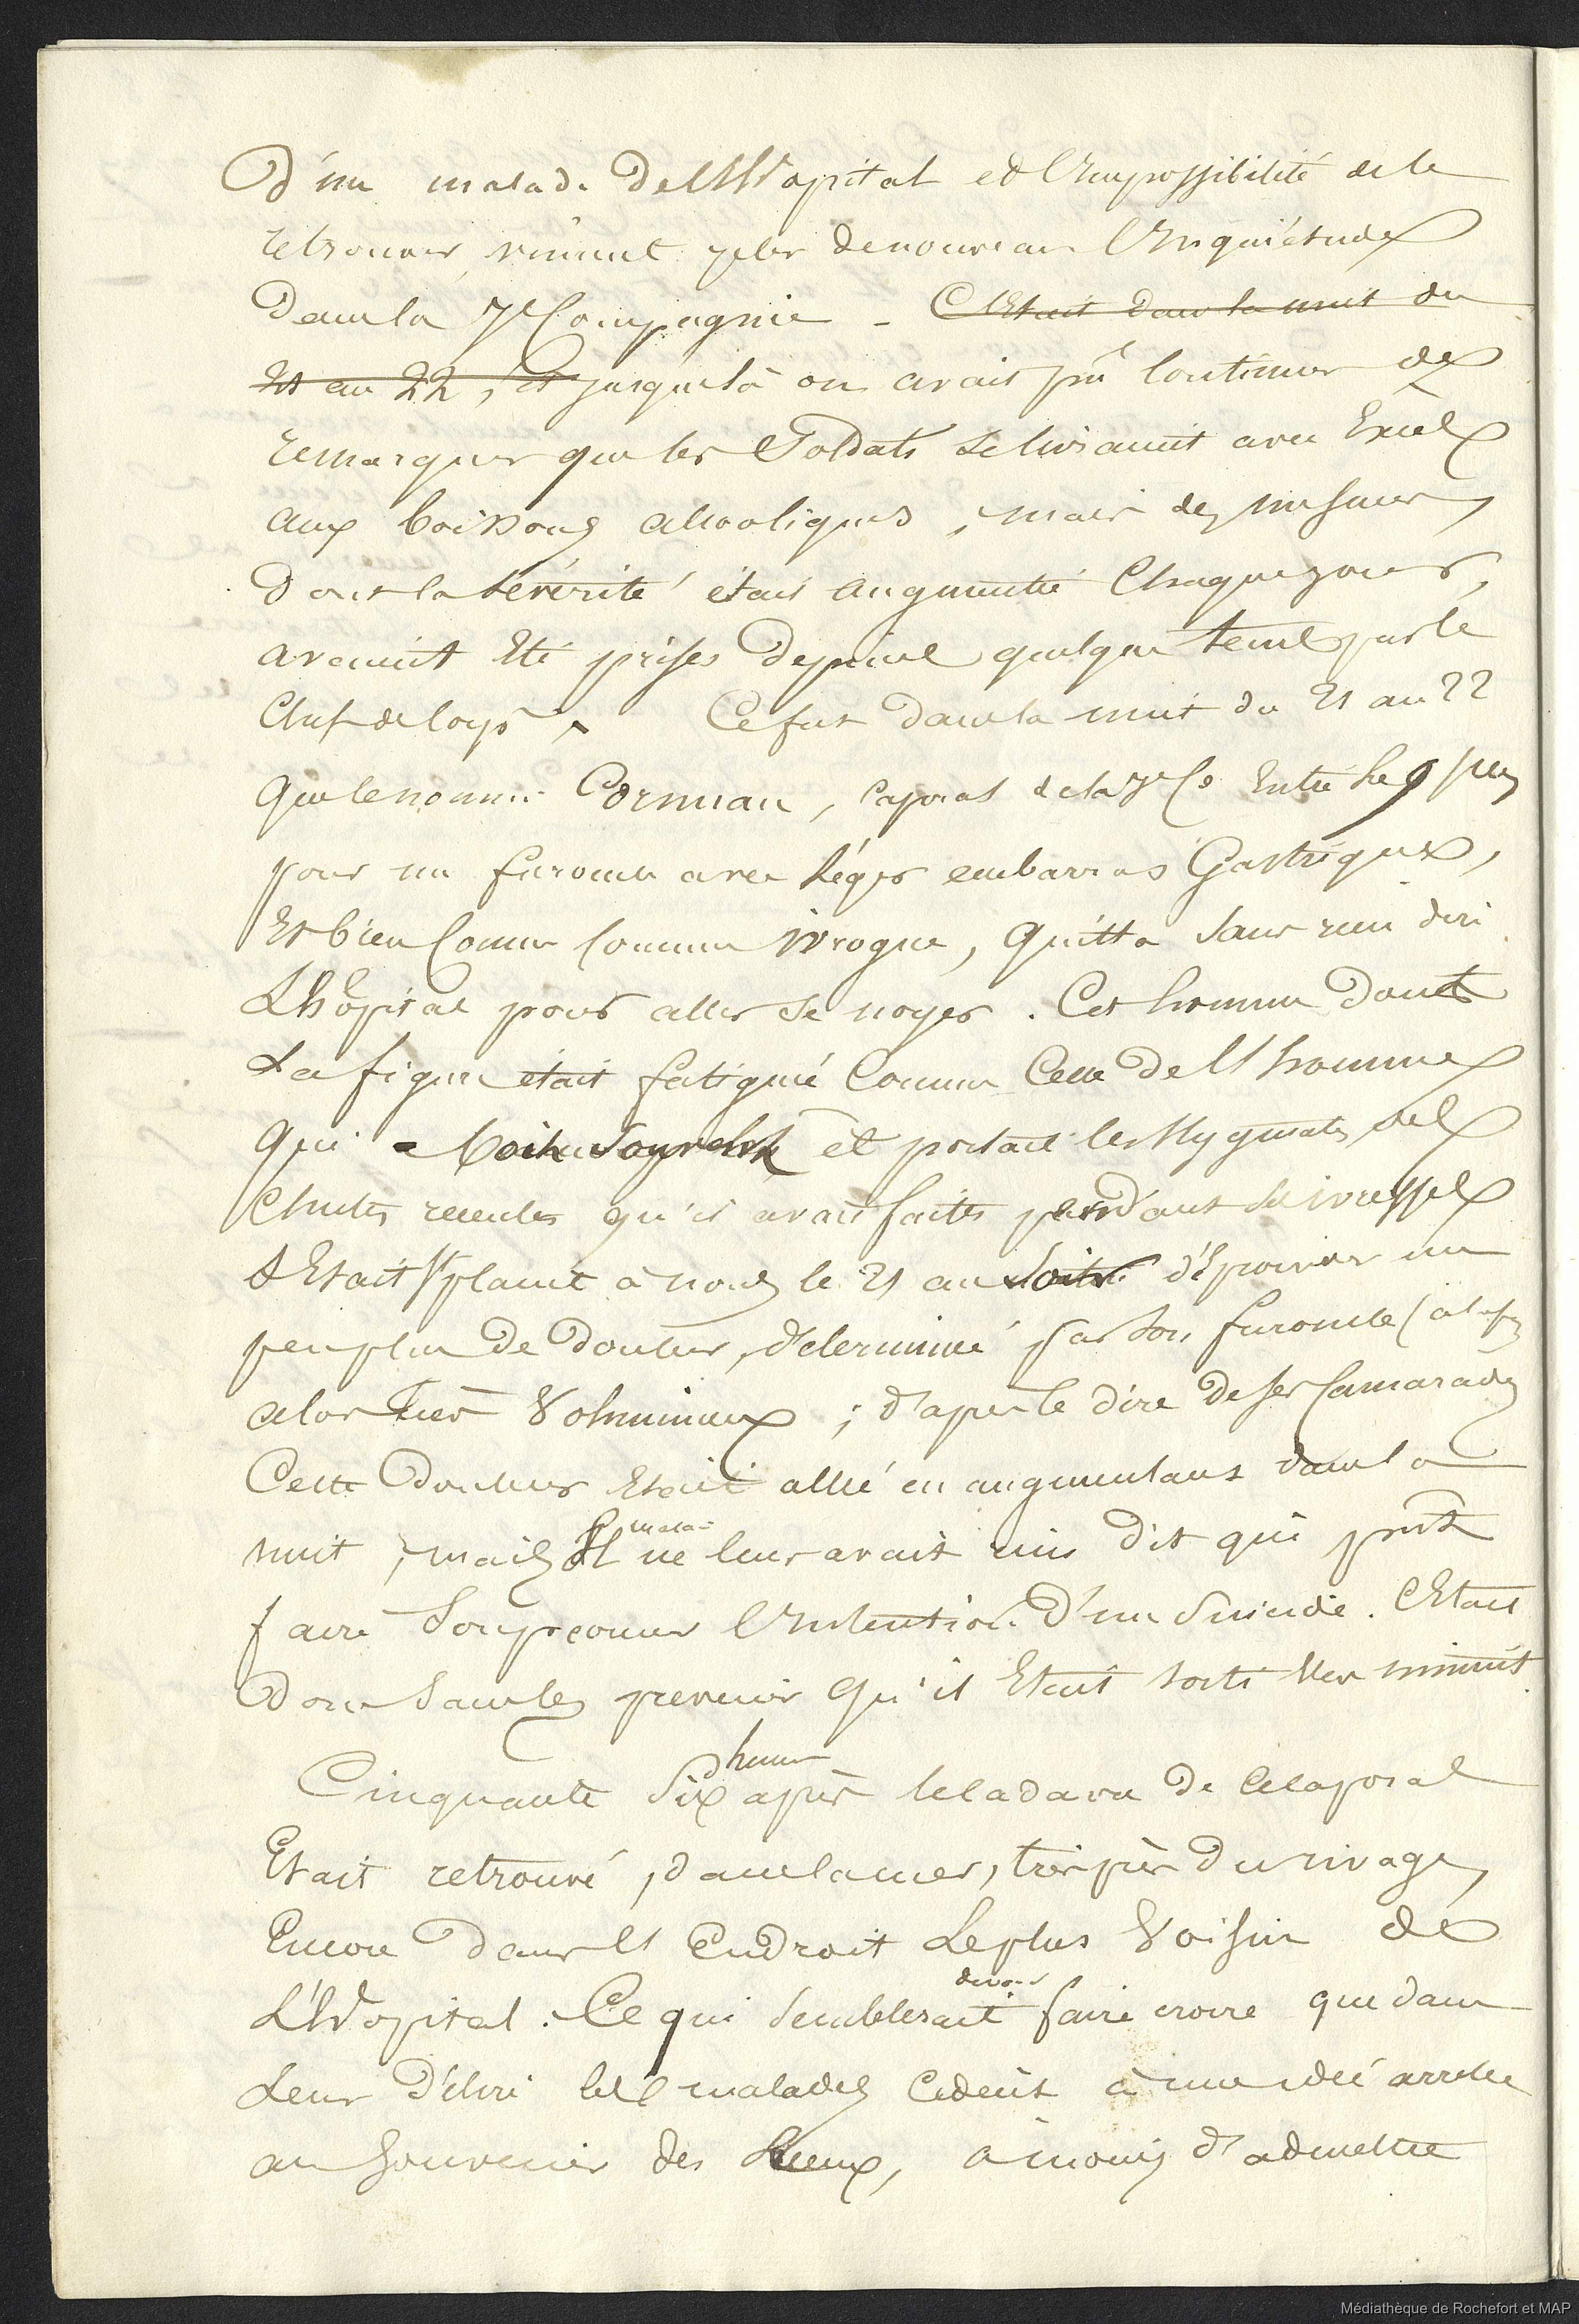 D'un malade Del'Hôpital et l'Impossibilité de le
retrouver, vinrent jeter denouveau l'Inquiétude
Dans la 7e Compagnie - C'Etait dans la nuit du
21 au 22, Et jusquelà on avait pû Continuer de
remarquer que les Soldats se livraient avec Excès
aux boissons alcooliques, mais des mesures,
Dont la sévérité était augmentée Chaque jour,
avaient Eté prises Depuis quelque tems par le
Chef de Corps. Ce fut Dans la nuit du 21 au 22
Que le nommé Corman, caporal de la 7e Cie Entré le 9
pour un furoncle avec léger embarras Gastrique,
Et bien Connu Comme ivrogne, Quitta Sans rien dire
L'hôpital pour aller Se noyer. Cet homme Dont
La figure était fatiguée Comme Celle De l'homme
Qui boit et portait les stygmates de
Chutes récentes qu'il avait faites pendant Son ivresse
S'Etait plaint à nous le 21 au Soir d'Eprouver un
peu plus De Douleur, Déterminée par Son furoncle
alors très Volumineux ; D'après le dire De ses Camarades
Cette Douleur Etait allée en augmentant dans la
nuit, mais Il ne leur avait rien dit qui pût
faire Soupçonner l'Intention D'un Suicide. C'Etait
Donc Sans les prévenir Qu'il Etait sorti Vers minuit.
Cinquante Six heures après le Cadavre De Ce Caporal
Etait retrouvé, dans la mer, très près Du rivage,
Encore Dans l'Endroit Le plus Voisin de
L'Hôpital. Ce qui Semblerait devoir faire croire que dans
Leur Délire les malades Cèdent à une idée arrêtée
au Souvenir des Lieux, à moins D'admettre
Médiathèque de Rochefort et MAP